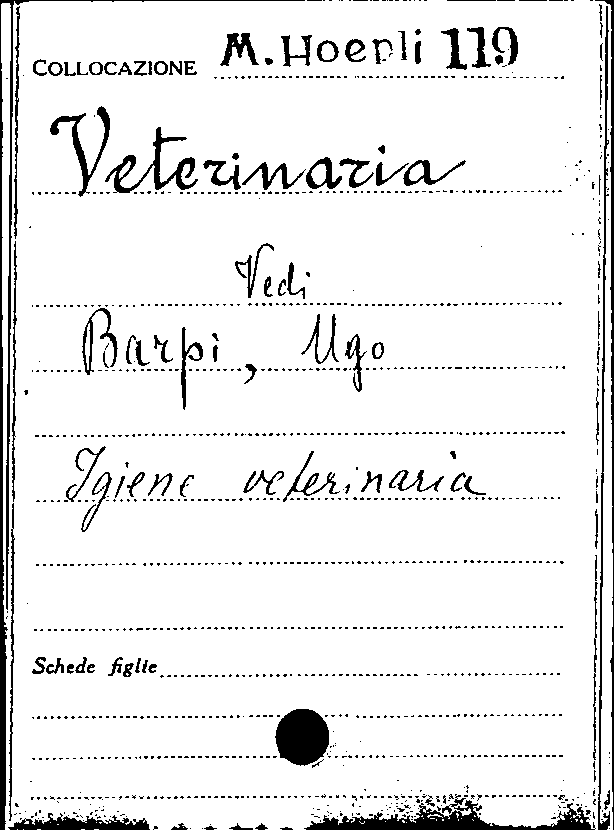 COLLOCAZIONE M. Hoepli 119
Veterinaria
Vedi
Barpi, Ugo
Igiene veterinaria
Schede figlie